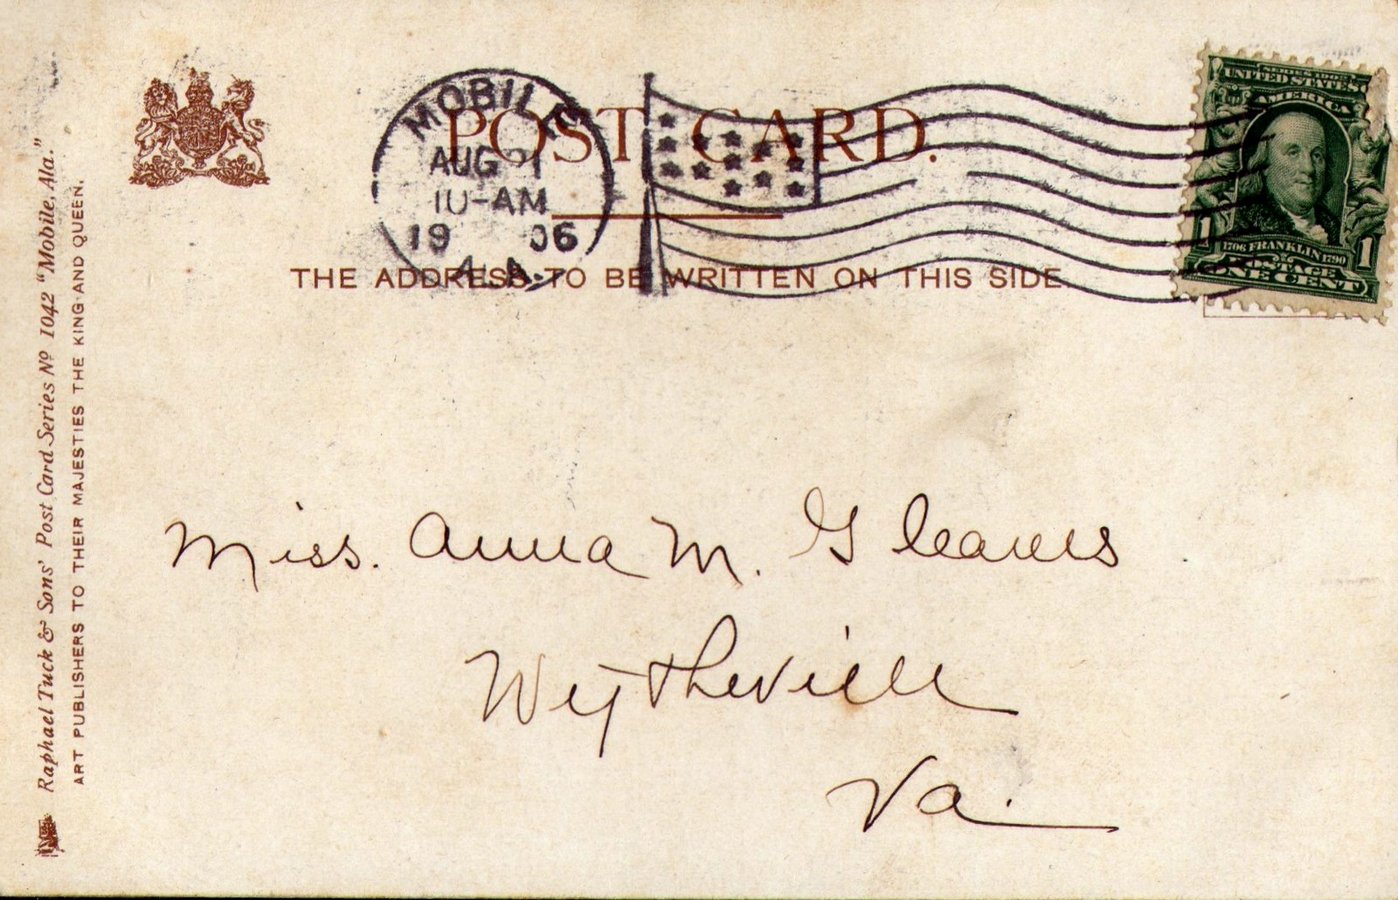 Raphael Tuck & Sons' Post Card Series No 1042 "Mobile, Ala."
ART PUBLISHERS TO THEIR MAJESTIES THE KING AND QUEEN.
POST CARD.
THE ADDRESS TO BE WRITTEN ON THIS SIDE
MOBILE
AUG
10-AM
1906
ALA.
SERIES 1902
UNITED STATES
AMERICA
1706 FRANKLIN 1790
POSTAGE
1 ONE CENT 1
Miss. Anna M. Gleaves
Wytheville
Va.